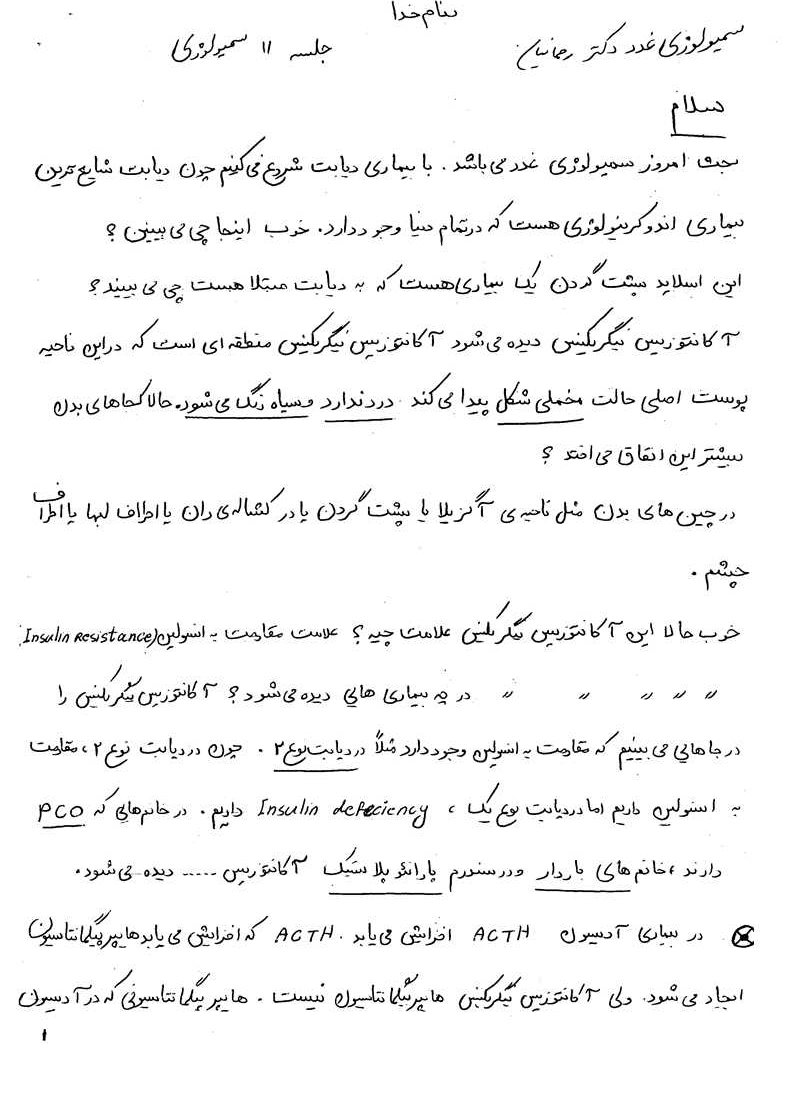 بنام خدا
سمیولوژی غدد دکتر رحمانیان جلسه ۱۱ سمیولوژی
سلام
بحث امروز سمیولوژی غدد می باشد . با بیماری دیابت شروع می کنیم چون دیابت شایع ترین
بیماری اندوکرینولوژی هست که در تمام دنیا وجود دارد. خوب اینجا چی می بینین ؟
این اسلاید پشت گردن یک بیماری هست که به دیابت مبتلا هست چی می بینید ؟
آکانتوزیس نیگریکنس دیده می شود آکانتوزیس نیگریکنس منطقه ای است که در این ناحیه
پوست اصلی حالت مخملی شکل پیدا می کند درد ندارد و سیاه رنگ می شود. حالا کجاهای بدن
بیشتر این اتفاق می افتد ؟
در چین های بدن مثل ناحیه ی آگزیلا یا پشت گردن یا در کشاله ی ران یا اطراف لبها یا اطراف
چشم .
خوب حالا این آکانتوزیس نیگریکنس علامت چیه ؟ علامت مقاومت به انسولین (Insulin Resistance)
〃 〃 〃 〃 〃 در چه بیماری هایی دیده می شود ؟ آکانتوزیس نیگریکنس را
در جاهایی می بینیم که مقاومت به انسولین وجود دارد مثلاً در دیابت نوع ۲ . چون در دیابت نوع ۲ ، مقاومت
به انسولین داریم اما در دیابت نوع یک ، Insulin defeciency داریم . در خانم هایی که PCO
دارند ، خانم های باردار و در سندرم پارانئوپلاستیک آکانتوزیس ..... دیده می شود .
⊗ در بیماری آدیسون ACTH افزایش می یابد . ACTH که افزایش می یابد هایپرپیگمانتاسیون
ایجاد می شود. ولی آکانتوزیس نیگریکنس هایپرپیگمانتاسیون نیست . هایپرپیگمانتاسیونی که در آدیسون
۱